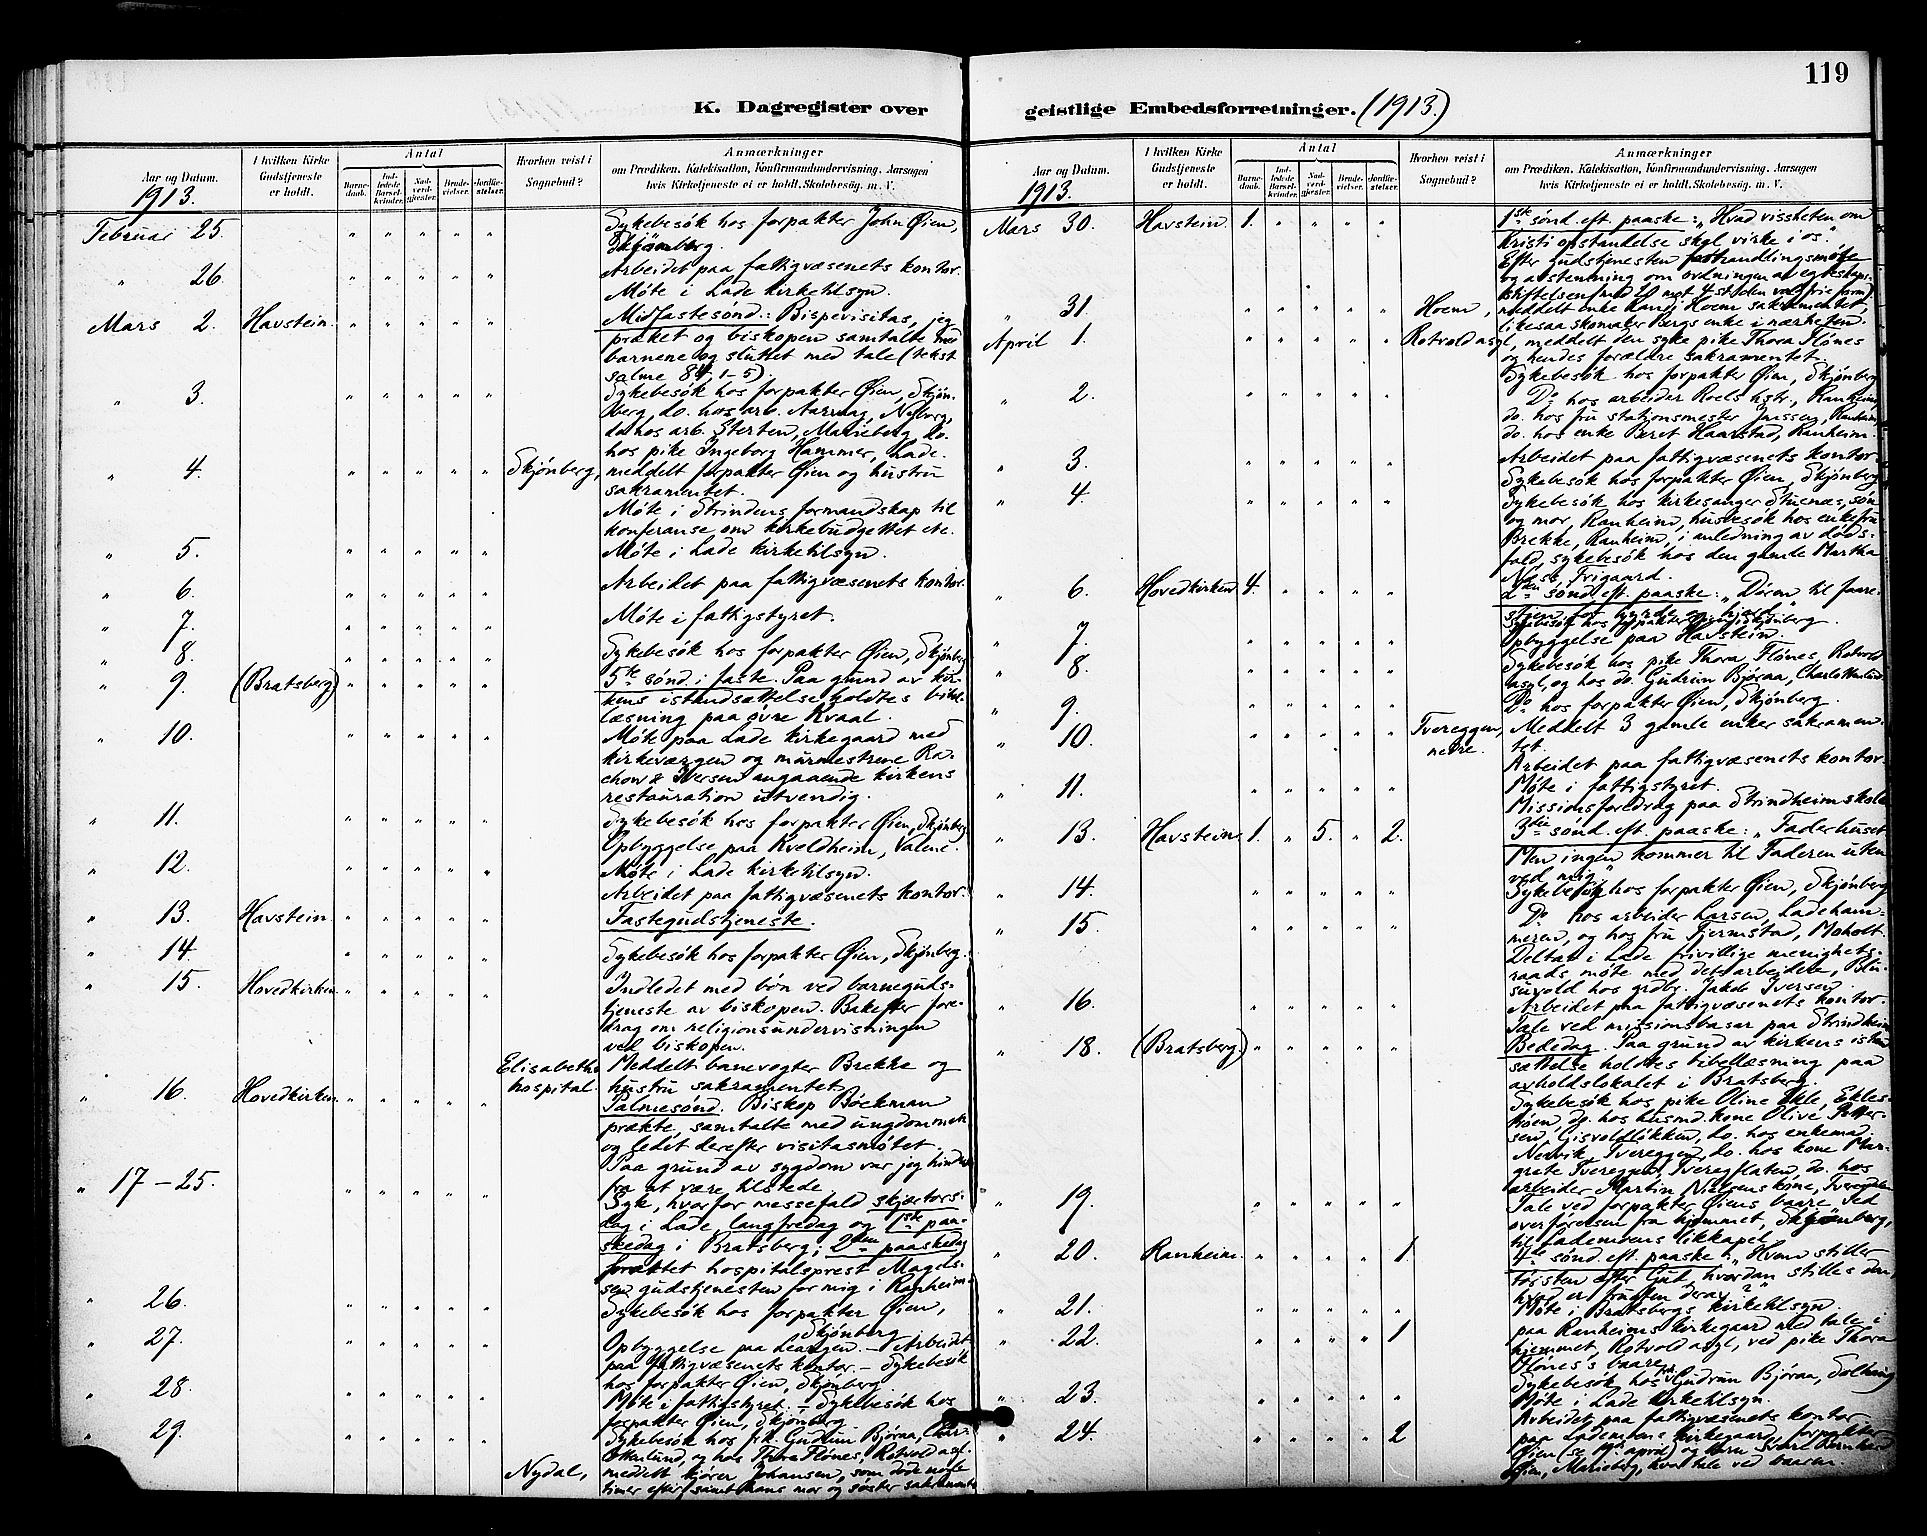 119
K. Dagregister over geistlige Embedsforretninger. (1913.)
Aar og Datum.
1913.
I hvilken Kirke Gudstjeneste er holdt.
Antal
Barnedaab.
Indledede Barselkvinder.
Nadverdgjester.
Brudevielser.
Jordfæstelser.
Hvorhen reist i Sognebud?
Anmærkninger
om Prædiken. Katekisation, Konfirmandundervisning. Aarsagen
hvis Kirketjeneste ei er holdt. Skolebesøg. m. V.
Februar 25. " " " " " Sykebesök hos forpakter John Øien,
Skjönberg.
" 26. " " " " " Arbeidet paa fattigvæsenets kontor.
Möte i Lade kirketilsyn.
Mars 2. Havstein. " " " " " Midfastesönd.: Bispevisitas, jeg
præket og biskopen samtalte med
barnene og sluttet med tale (tekst
salme 84, 1-5).
" 3. " " " " " Sykebesök hos forpakter Øien, Skjön-
berg, do. hos arb. Aarmag, Nyborg,
do. hos arb. Sterten, Marieberg, do.
hos pike Ingeborg Hammer, Lade.
" 4. " " " " " Skjönberg, meddelt forpakter Øien og hustru
sakramentet.
Möte i Strindens formandskap til
konferanse om kirkebudgettet etc.
" 5. " " " " " Möte i Lade kirketilsyn.
" 6. " " " " " Arbeidet paa fattigvæsenets kontor.
" 7. " " " " " Möte i fattigstyret.
" 8. " " " " " Sykebesök hos forpakter Øien, Skjönberg
" 9. (Bratsberg) " " " " " 5te sönd. i faste. Paa grund av kir-
kens istandsættelse holdtes bibel-
læsning paa övre Kvaal.
" 10. " " " " " Möte paa Lade kirkegaard med
kirkeværgen og murmestrene Ra-
chow & Iversen angaaende kirkens
restauration utvendig.
" 11. " " " " " Sykebesök hos forpakter Øien, Skjönberg.
Opbyggelse paa Kveldheim, Valene.
" 12. " " " " " Möte i Lade kirketilsyn.
Arbeidet paa fattigvæsenets kontor.
" 13. Havstein " " " " " Fastegudstjeneste.
" 14. " " " " " Sykebesök hos forpakter Øien, Skjönberg.
" 15. Hovedkirken " " " " " Indledet med bön ved barneguds-
tjeneste av biskopen. Bakefter fore-
drag om religionsundervisningen
ved biskopen.
Elisabeths hospital. Meddelt banevogter Brekke og
hustru sakramentet.
" 16. Hovedkirken " " " " " Palmesönd. Biskop Böckman
prækte, samtalte med ungdommen
og ledet derefter visitasmötet.
Paa grund av sygdom var jeg hindret
fra at være tilstede.
" 17-25. " " " " " Syk, hvorfor messefald skjærtors-
dag i Lade, langfredag og 1ste paa-
skedag i Bratsberg; 2den paaskedag
forrettet hospitalsprest Magels-
sen gudstjenesten for mig i Ranheim.
" 26. " " " " " Sykebesök hos forpakter Øien,
Skjönberg
" 27. " " " " " Opbyggelse paa Leangen. - Arbeidet
paa fattigvæsenets kontor. - Sykebesök
hos forpakter Øien, Skjönberg.
" 28. " " " " " Möte i fattigstyret. - Sykebesök hos
forpakter Øien, Skjönberg
" 29. " " " " " Sykebesök hos frk. Gudrun Björaa, Char-
lottenlund, og hos Thora Flönes, Rotvold asyl.
Nydal, meddelt kjörer Johansen, som döde nogle
timer efter, samt hans mor og söster sakramentet
Aar og Datum.
1913.
I hvilken Kirke Gudstjeneste er holdt.
Antal
Barnedaab.
Indledede Barselkvinder.
Nadverdgjester.
Brudevielser.
Jordfæstelser.
Hvorhen reist i Sognebud?
Anmærkninger
om Prædiken. Katekisation, Konfirmandundervisning. Aarsagen
hvis Kirketjeneste ei er holdt. Skolebesøg. m. V.
Mars 30. Havstein. 1. " " " " 1ste sönd. eft. paaske: "Hvad vissheten om
Kristi opstandelse skal virke i os."
Efter gudstjenesten forhandlingsmöte
og avstemning om ordningen av egteskaps-
stiftelsen (med 20 mot 4 st. for den valgfrie form)
" 31. " " " " " Hoem, meddelt enke Hoem sakramentet,
likesaa skomaker Bergs enke i nærheten.
April 1. " " " " " Rotvold asyl, meddelt den syke pike Thora Flönes
og hendes forældre sakramentet.
Sykebesök hos forpakter Øien, Skjönberg
" 2. " " " " " Do hos arbeider Roels hstr., Ranheim,
do. hos fru stationsmester Janssen, Ranheim,
do. hos enke Beret Haarstad, Ranheim.
" 3. " " " " " Arbeidet paa fattigvæsenets kontor.
Sykebesök hos forpakter Øien, Skjönberg
" 4. " " " " " Sykebesök hos kirkesanger Stuenæs, sön
og mor, Ranheim, husbesök hos enkefru
Brekke, Ranheim, i anledning av döds-
fald, sykebesök hos den gamle Martha
Næss, Frigaard.
" 6. Hovedkirken 4. " " " " 2den sönd. eft. paaske: "Dören til faare-
stien for hyrde og hjord."
Sykebesök hos forpakter Øien, Skjönberg.
" 7. " " " " " Opbyggelse paa Havstein.
" 8. " " " " " Sykebesök hos pike Thora Flönes, Rotvold
asyl, og hos do. Gudrun Björaa, Charlottenlund
" 9. " " " " " Do hos forpakter Øien, Skjönberg.
" 10. " " " " " Tvereggen, nedre. Meddelt 3 gamle enker sakramen-
tet.
Arbeidet paa fattigvæsenets kontor.
" 11. " " " " " Möte i fattigstyret.
Missionsforedrag paa Strindheim skole
" 13. Havstein. 1. " 5. " 2. 3die sönd. eft. paaske: "Faderhuset
Men ingen kommer til Faderen uten
ved mig"
" 14. " " " " " Sykebesök hos forpakter Øien, Skjönberg
" 15. " " " " " Do hos arbeider Larsen, Ladeham-
meren, og hos fru Fjermstad, Moholt.
Deltat i Lade frivillige menighets-
raads möte med dets arbeidere, Blu-
suvold hos grdbr. Jakob Iversen.
" 16. " " " " " Arbeidet paa fattigvæsenets kontor.
Tale ved missionsbasar paa Strindheim
" 18. (Bratsberg.) " " " " " Bededag. Paa grund av kirkens istand-
sættelse holdtes bibellæsning paa
avholdslokalet i Bratsberg.
Sykebesök hos pike Oline Ekle, Ekles-
höen, do. hos husmd. kone Olive Petter-
sen, Gisvoldlökken, do. hos enkemad.
Nervik, Tvereggen, do. hos kone Mar-
grete Tvereggen, Tveregflaten, do. hos
arbeider Martin Nielsens kone, Tveregflaten
" 19. " " " " " Tale ved forpakter Øiens baare ved
overförelsen fra hjemmet, Skjönberg,
til Lademoens likkapel.
" 20. Ranheim. " " " " 1. 4de sönd. eft. paaske: "Hvem stiller
törsten efter Gud, hvordan stilles den,
hvad er frugten derav"
" 21. " " " " " Möte i Bratsbergs kirketilsyn.
" 22. " " " " 1 paa Ranheims kirkegaard med tale i
hjemmet, Rotvold asyl, ved pike Thora
Flönes's baare.
" 23. " " " " " Sykebesök hos Gudrun Björaa, Solhaug
Möte i Lade kirketilsyn.
Arbeidet paa fattigvæsenets kontor.
" 24. " " " " 2 paa Lademoens kirkegaard, forpakter
Øien (se 19. april) og barn Kaare Bernhard
Øien, Marieberg, hvor tale ved baaren.